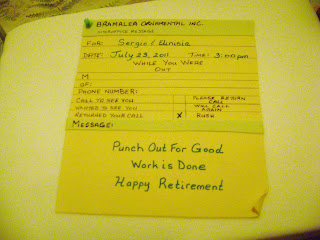 BRAMALEA ORNAMENTAL INC.
INTEROFFICE MESSAGE
FOR: Sergio
DATE: July 29, 2011 TIME: 3:00 pm
WHILE YOU WERE
OUT
M
OF:
PHONE NUMBER:
CALL TO SEE YOU PLEASE RETURN CALL
WANTED TO SEE YOU WILL CALL AGAIN
RETURNED YOUR CALL X RUSH
MESSAGE:
Punch Out For Good
Work is Done
Happy Retirement